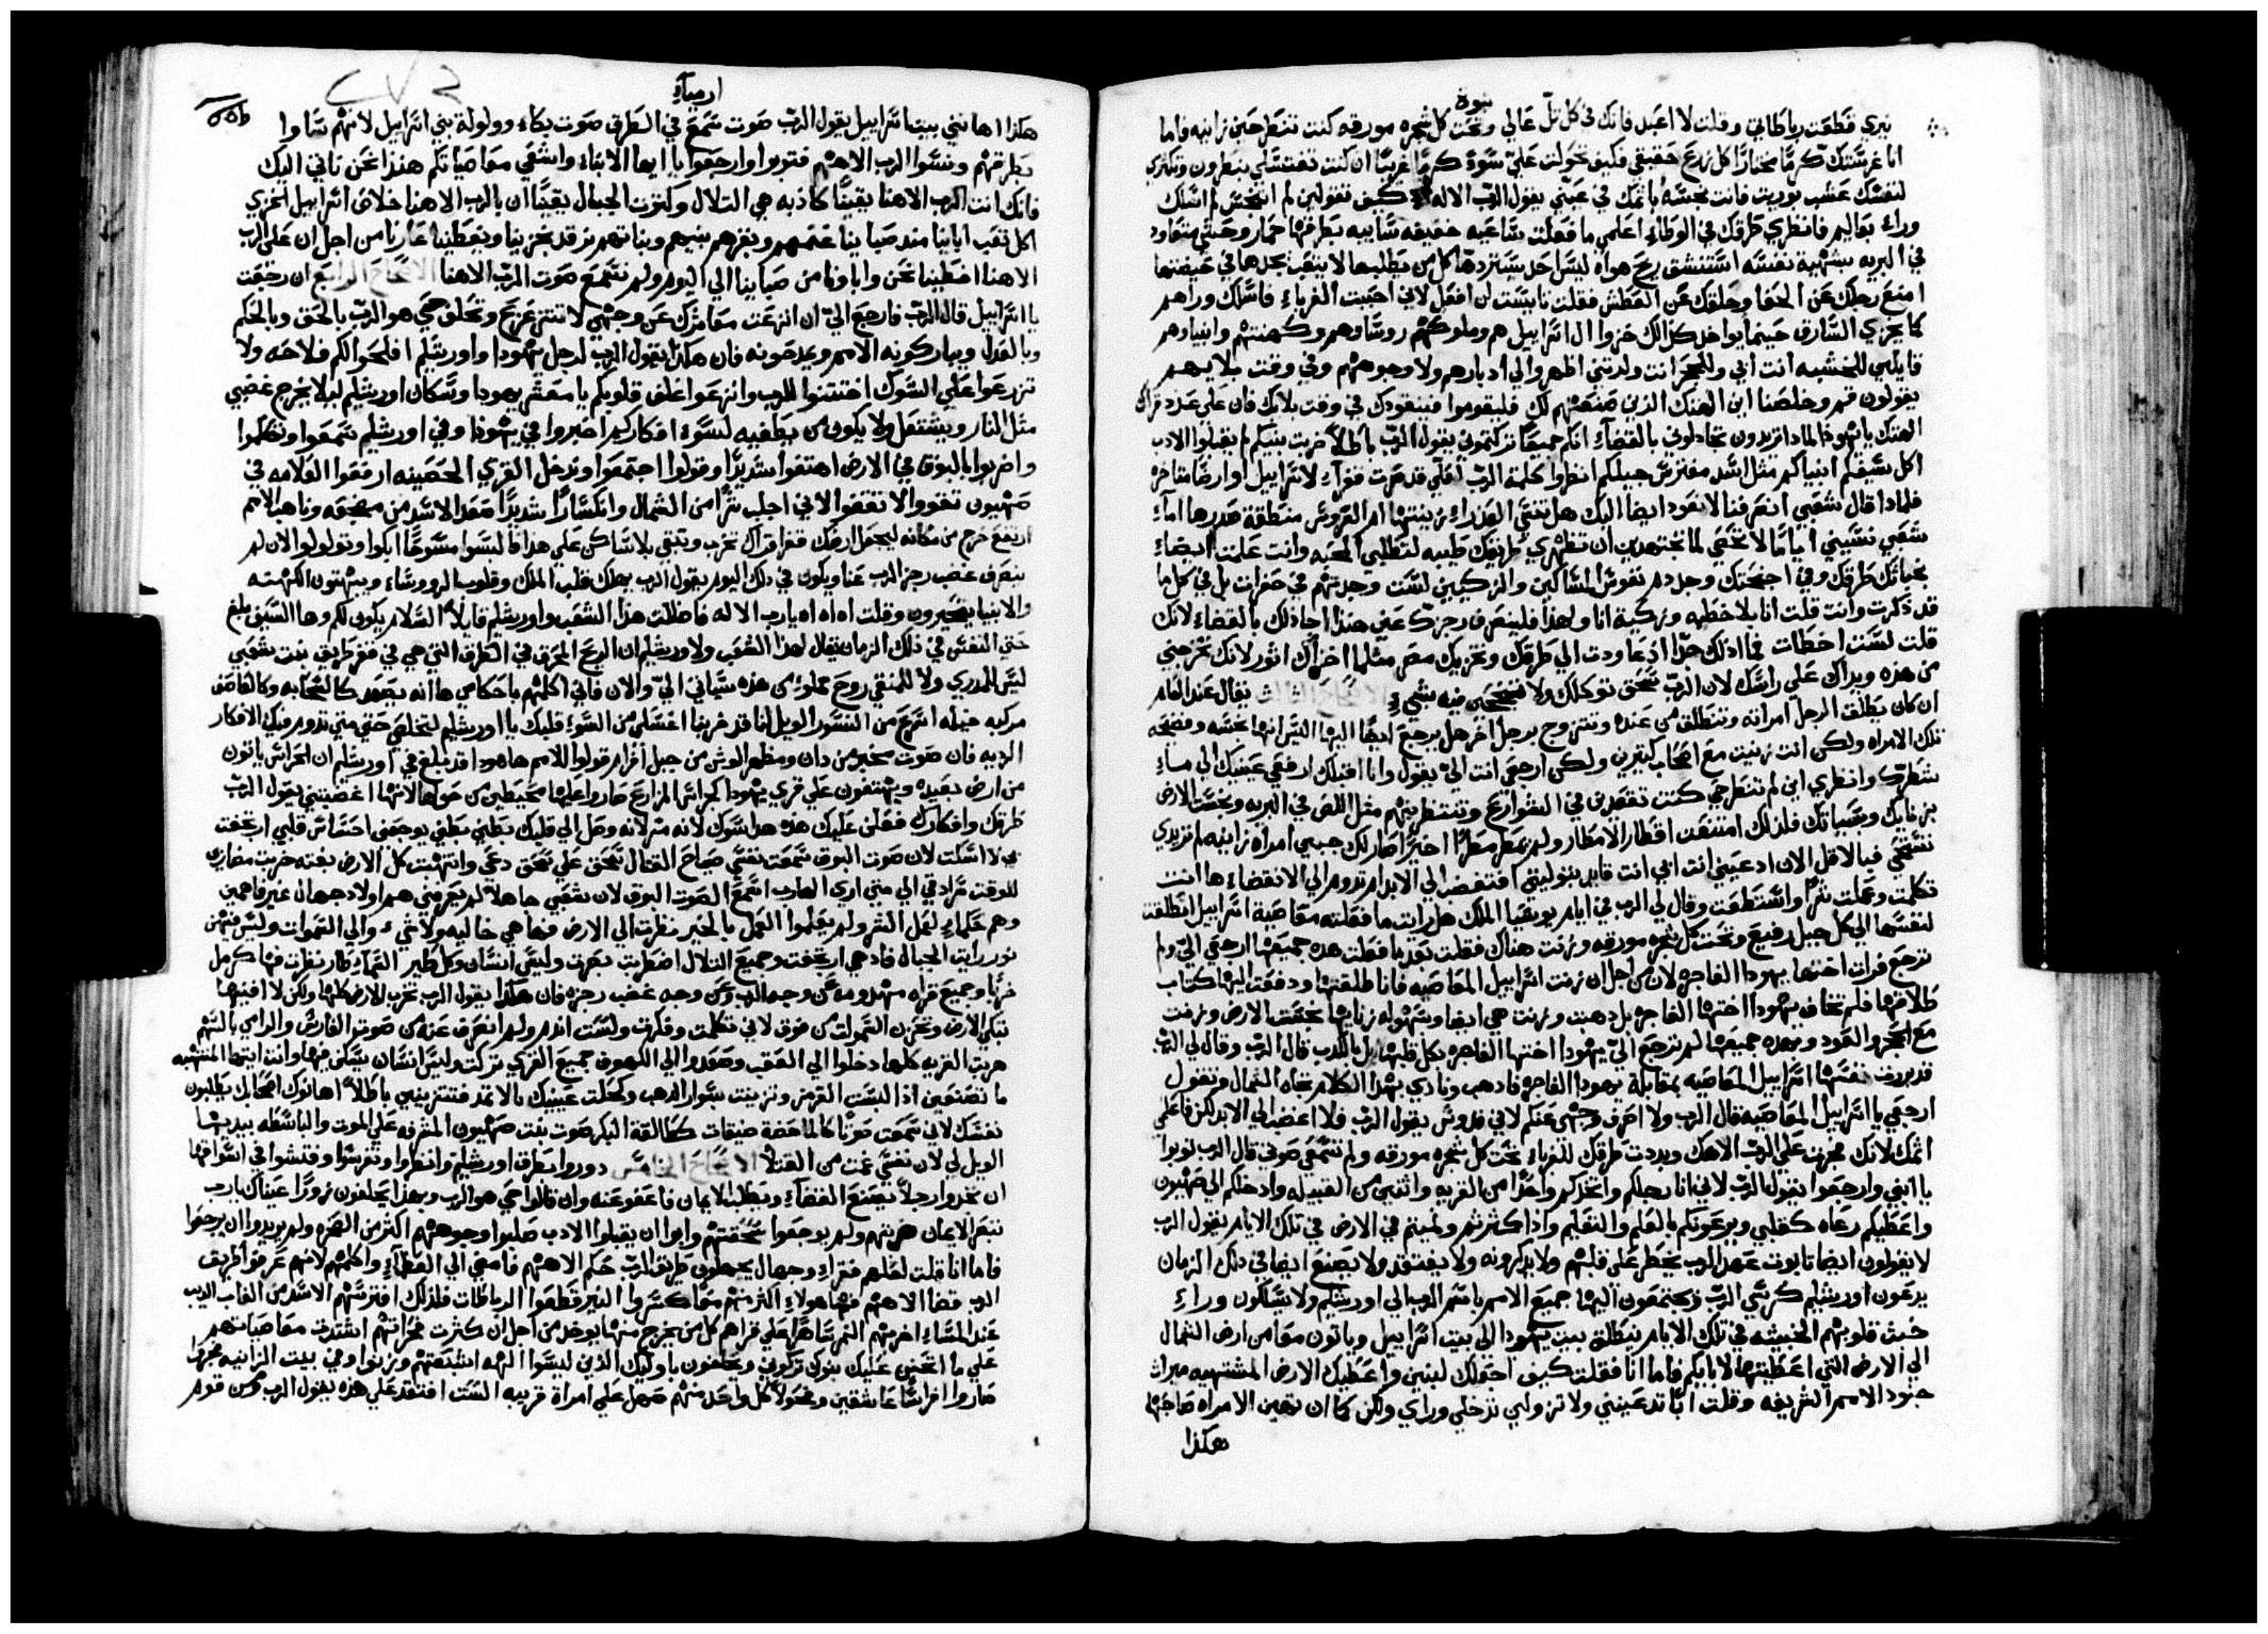 نبوة
نيري قطعت رباطاتي وقلت لا اعبد فانك في كل تل عالي وتحت كل شجره مورقه كنت تنطرحين زانيه فاما
انا غرستك كرمًا مختارًا كل زرع حقيقي فكيف تحولت علي سوة كرمًا غريبًا ان كنت تغتسلي بنطرون وتكثري
لنفسك عشب بوريت فانت نجسه باثمك في عيني يقول الرب الاله كيف تقولين لم اتنجس لم اسلك
وراء بعاليم فانظري طرقك في الوطاء اعلمي ما فعلت ساعيه خفيفه سابيه بطرقها حمار وحشي متعاود
في البريه بشهية نفسه استنشق ريح هواه ليس احد يستردها كل من يطلبها لا يتعب يجدها في حيضتها
امنع رجلك عن الحفا وحلقك عن العطش فقلت نايست لن افعل لاني احببت الغرباء فاسلك وراهم
كما يخزي السارق حينما يواخد كذلك خزوا ال اسراييل هم وملوكهم روساوهم وكهنتهم وانبياوهم
قايلين للخشبه انت ابي وللحجر انت ولدتني اظهروا الي ادبارهم ولا وجوههم وفي وقت بلايهم
يقولون قم وخلصنا اين الهتك الذين صنعتهم لك فليقوموا فينقودك في وقت بلاك فان علي عدد قراك
الهتك يا يهودا لمادا تريدون تجادلوني بالقضاء انكم جميعًا تركتموني يقول الرب باطلاً ضربت بنيكم لم يقبلوا الادب
اكل سيفكم انبياكم مثل اسد مفترس جيلكم انظروا كلمة الرب لعلي قد صرت قفرًا لاسراييل او ارضًا متاخره
فلمادا قال شعبي انعرفنا لا نعود ايضا اليك هل تنسي العذراء زينتها ام العروس منطقة صدرها اما
شعبي نسيني ايامًا لا تحصي لما تجتهدين ان تظهري طريقك طيبه لتطلبي المحبه وانت علمت ايضا
بخباتك طرقك وفي اجنحتك وجد دم نفوس المساكين والزكيين لست وجدتهم في حفرات بل في كل ما
قد ذكرت وانت قلت انا بلا خطيه وزكية انا ولهذا فلينصرف رجزك عني هنذا احادلك بالقضاء لانك
قلت لست اخطات فما ادلك جدًا اذ عاودت الي طرقك وتخزيك مصر مثلما اخزاك اثور لانك تخرجي
من هذه ويداك علي راسك لان الرب سحق توكلك ولا تنجحين فيه بشيء الاصحاح الثالث يقال عند العامه
ان كان يطلق الرجل امراته وتنطلق من عنده وتتزوج برجل اخر هل يرجع ايضًا اليها اليس انها نجسه وفضحه
تلك الامراه ولكن انت زنيت مع اصحاب كتيرين ولكن ارجعي انت الي يقول وانا اقبلك ارفعي عينيك الي ماء
شطرك وانظري اين لم تنطرحي كنت تقعدين في الشوارع وتنتظرينهم مثل اللص في البريه ونجست الارض
بزناك وبسياتك فلذلك امتنعت اقطار الامطار ولم يمطر مطرًا اخيرًا صار لك جبين امراة زانيه لم تريدي
تستحي فبالاقل الان ادعيني انت ابي انت قايد بتوليتي افتغضب الي الابد ام تدوم الي الانقضاء ها انت
تكلمت وعملت شرًا واستطعت وقال لي الرب في ايام يوشيا الملك هل رايت ما فعلته معاصية اسراييل انطلقت
لنفسها الي كل جبل رفيع وتحت كل شجره مورقه وزنت هناك فقلت بعد ما فعلت هده جميعها ارجعي الي ولم
ترجع فرات اختها يهودا الفاجره لان من اجل ان زنت اسراييل المعاصيه فانا طلقتها ودفعت اليها كتاب
طلاقها فلم تخاف يهودا اختها الفاجره بل دهبت وزنت هي ايضا وبسهولة زناها نجست الارض وزنت
مع الحجر والعود وبهده جميعها لم ترجع الي يهودا اختها الفاجره بكل قلبها بل بالكدب قال الرب وقال لي الرب
قد بررت نفسها اسراييل المعاصيه بمقابلة يهودا الفاجره فادهب ونادي بهدا الكلام تجاه الشمال وتقول
ارجعي يا اسراييل المعاصيه قال الرب ولا اصرف وجهي عنكم لاني قدوس يقول الرب فلا اغضب الي الابد لكن فاعلمي
اثمك لانك فجرت علي الرب الاهك وبددت طرقك للغرباء تحت كل شجره مورقه ولم تسمعي صوتي قال الرب توبوا
يا ابني وارجعوا يقول الرب لاني انا رجلكم واتخدكم واحدًا من القريه واتنين من القبيله وادخلكم الي صهيون
واعطيكم رعاه كقلبي ويرعونكم بالعلم والتعليم واذا كثرتم ونميتم في الارض في تلك الايام يقول الرب
لا يقولون ايضا تابوت عهد الرب يخطر علي قلبهم ولا يدكرونه ولا يفتقد ولا يصنع ايضا في دلك الزمان
يدعون اورشليم كرسي الرب ويجتمعون اليها جميع الامم باسم الرب الي اورشليم ولا يسلكون وراء
خبث قلوبهم الخبيثه في تلك الايام ينطلق بيت يهودا الي بيت اسراييل وياتون معًا من ارض الشمال
الي الارض التي اعطيتها لابايكم فاما انا فقلت كيف اجعلك لبنين واعطيك الارض المشتهيه ميراث
جنود الامم الشريفه وقلت ابًا تدعيني ولا تزولين تدخلي وراي ولكن كما ان تهين الامراه صاحبها
هكذا
ارمياء
هكذا اهانني بيت اسراييل يقول الرب صوت سمع في الطرق صوت بكاء وولولة بني اسراييل لانهم ساوا
بطرقهم ونسوا الرب الاههم فتوبوا وارجعوا يا ايها الابناء واشفي معاصاتكم هنذا نحن ناتي اليك
فانك انت الرب الاهنا يقينًا كاذبه هي التلال وكثرت الجبال يقينًا ان بالرب الاهنا خلاص اسراييل الخزي
اكل تعب اباينا مند صباينا غنمهم وبقرهم بنيهم وبناتهم نرقد بخزينا ويغطينا عارنا من اجل ان علي الرب
الاهنا اخطينا نحن واباونا من صباينا الي اليوم ولم نسمع صوت الرب الاهنا الاصحاح الرابع ان رجعت
يا اسراييل قال الرب فارجع الي ان انزعت معاثرك عن وجهي لا تتزعزع وتحلف حي هو الرب بالحق وبالحكم
وبالعدل ويباركونه الامم ويمدحونه فان هكذا يقول الرب لرجل يهودا واورشليم افلحوا لكم فلاحه ولا
تزرعوا علي الشوك اختتنوا للرب وانزعوا غلف قلوبكم يا معشر يهودا وسكان اورشليم ليلا يخرج غضبي
مثل النار ويشتعل ولا يكون من يطفيه لسوء افكاركم اخبروا في يهودا وفي اورشليم سمعوا وتكلموا
واضربوا بالبوق في الارض اهتفوا شديدًا وقولوا اجتمعوا وندخل القري الحصينه ارفعوا العلامه في
صهيون تقووا لا تقفوا لاني اجلب شرًا من الشمال وانكسارًا شديدًا صعد الاسد من مضجعه وناهب الامم
ارتفع خرج من مكانه ليجعل ارضك قفرا قراك تخرب وتبقي بلا ساكن علي هدا فالبسوا مسوحًا ابكوا وتولولوا لان لم
ينصرف غضب رجز الرب عنا ويكون في دلك اليوم يقول الرب يهلك قلب الملك وقلوب الروساء ويبهتون الكهنه
والانبيا يتحيرون وقلت اه اه اه يا رب الاله فاضللت هذا الشعب واورشليم قايلاً السلام يكون لكم وها السيف بلغ
حتي النفس في ذلك الزمان يقال لهذا الشعب ولاورشليم ان الريح المحرق في الطرق التي هي في قفر طريق بنت شعبي
ليس للمدري ولا للمنقي روح مملوء من هذه سياتي الي والان فاني اكلمهم باحكامي ها انه يصعد كالسحابه وكالعاصف
مركبه خيله اسرع من النسور الويل لنا قد خربنا اغسلي من السوء قلبك يا اورشليم لتخلصي حتي متي تدوم فيك الافكار
الرديه فان صوت مخبر من دان ومظهر الوثن من جبل افرام قولوا للامم ها هودا قد بلغ في اورشليم ان الحراس ياتون
من ارض بعيده ويهتفون علي قري يهودا كحراس المزارع صاروا عليها محيطين من حولها لانها اغضبتني يقول الرب
طرقك وافكارك فعلن عليك هذه هدا سوك لانه مر لانه وصل الي قلبك بطني بطني يوجعني احساس قلبي ارتجفت
بي لا اسكت لان صوت البوق سمعت نفسي صياح القتال سحق علي سحق دعي وانتهبت كل الارض بغته خربت مضاربي
للوقت سرادقي الي متي اري الهارب اسمع الصوت البوق لان شعبي جاهلا لم يعرفني هم اولاد جهال غير فاهمين
وهم حكماء لعمل الشر ولم يعلموا العمل بالخير نظرت الي الارض فهاهي خاليه ولا شيء والي السموات وليس فيهن
نور رايت الجبال فاد هي ارتجفت وجميع التلال اضطربت نظرت وليس انسان وكل طير السماء طار نظرت فها كرمل
خربا وجميع قراه مهدومه عن وجه الرب وعن وجه غضب رجزه فان هكذا يقول الرب تخرب الارض كلها ولكن لا افنيها
تبكي الارض وتحزن السموات من فوق لاني تكلمت وفكرت ولست اندم ولم انصرف عنه من صوت الفارس والرامي بالسهم
هربت القريه كلها دخلوا الي الشعب وصعدوا الي الكهوف جميع القري تركت وليس انسان يسكن فيها وانت ايتها المنتهبه
ما تصنعين اذا لبست القرمز وتزينت بسوار الدهب وكحلت عينيك بالاثمد فتتزينين باطلاً اهانوك اصحابك يطلبون
نفسك لاني سمعت صوتًا كالماخضة ضيقات كالقة البكر صوت بنت صهيون المشرفه علي الموت والباسطه يديها
الويل لي لان نفسي غمت من القتلا الاصحاح الخامس دوروا بطرق اورشليم وانظروا وتفرسوا وفتشوا في اسواقها
ان تجدوا رجلاً يصنع القضاء ويطلب الايمان فاعفو عنه وان قالوا حي هو الرب وبهذا يحلفون زورًا عيناك يا رب
تنظر الايمان ضربتهم ولم يوجعوا سحقتهم وابوا ان يقبلوا الادب صلبوا وجوههم اكثر من الصخره ولم يريدوا ان يرجعوا
فاما انا قلت لعلهم فقراء وجهال يجهلون طريق الرب حكم الاههم فامضي الي العظماء واكلمهم لانهم عرفوا طريق
الرب قضا الاههم فهاهولاء اكثرمنهم معًا كسروا النير قطعوا الرباطات فلذلك افترسهم الاسد من الغاب الديب
عند المساء اخربهم النمر ساهرًا علي قراهم كل من يخرج منها يوخد من اجل ان كثرت فجراتهم اشتدت معاصاتهم
علي ما اتحنن عليك بنوك تركوني ويحلفون باوليك الذين ليسوا الهه اشبعتهم وزنوا وفي بيت الزانيه فجروا
صاروا افراسًا عاشقين وفحولاً كل واحد منهم صهل علي امراة قريبه الست افتقد علي هذه يقول الرب ومن قوم